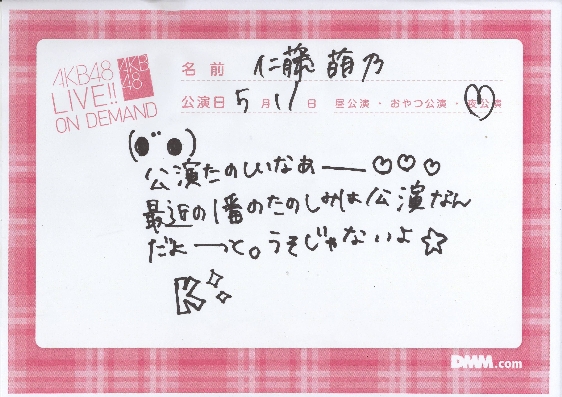 AKB48
LIVE!!
ON DEMAND
AKB
48
名前 仁藤萌乃
公演日 5月11日 昼公演・おやつ公演・夜公演
公演たのしいなあー♡♡♡
最近の1番のたのしみは公演なん
だよーっと。うそじゃないよ☆
K
DMM.com